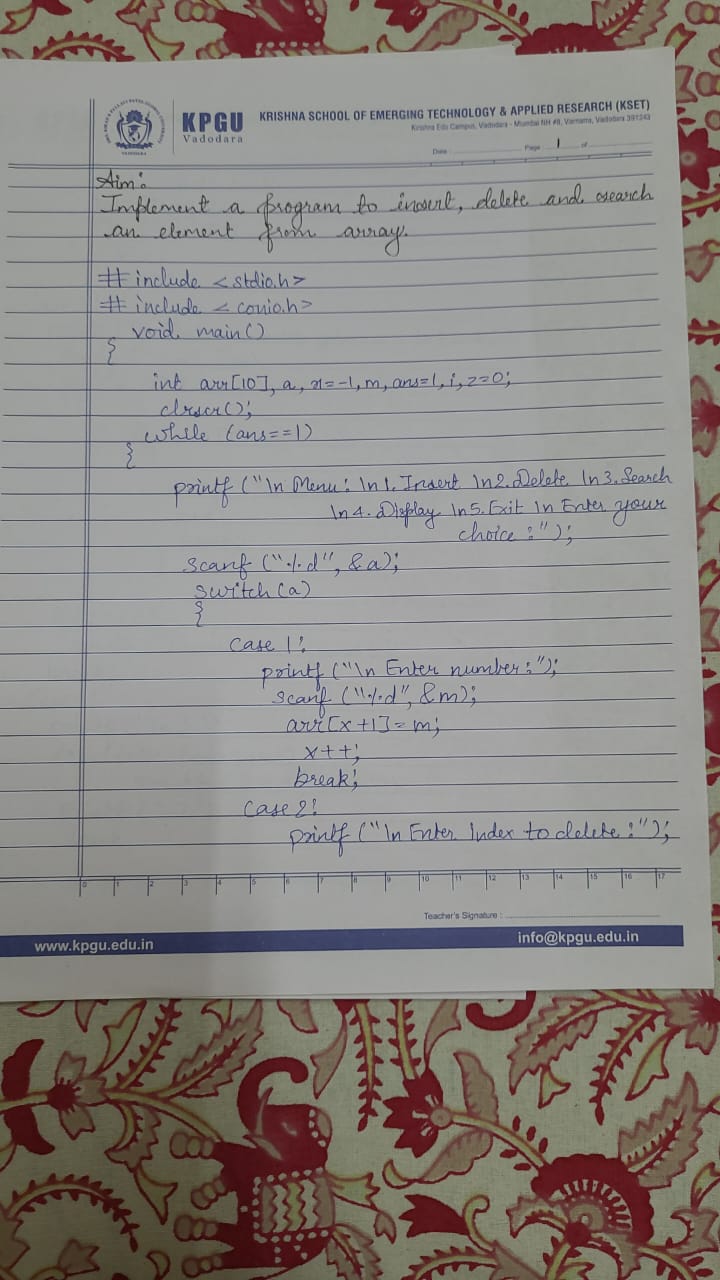 KPGU
Vadodara
KRISHNA SCHOOL OF EMERGING TECHNOLOGY & APPLIED RESEARCH (KSET)
Krishna Edu Campus, Vadodara - Mumbai NH #8, Varnama, Vadodara 391243
Date : Page 1 of
Aim:
Implement a program to insert, delete and search
an element from array.
# include <stdio.h>
# include <conio.h>
void main()
{
int arr[10], a, x=-1, m, ans=1, i, z=0;
clrscr();
while (ans==1)
{
printf ("\n Menu: \n 1. Insert \n 2. Delete \n 3. Search
\n 4. Display \n 5. Exit \n Enter your
choice :");
scanf ("%d", &a);
switch (a)
{
case 1:
printf ("\n Enter number:");
scanf ("%d", &m);
arr[x+1]=m;
x++;
break;
case 2:
printf ("\n Enter Index to delete :");
0 1 2 3 4 5 6 7 8 9 10 11 12 13 14 15 16 17
Teacher's Signature :
www.kpgu.edu.in
info@kpgu.edu.in